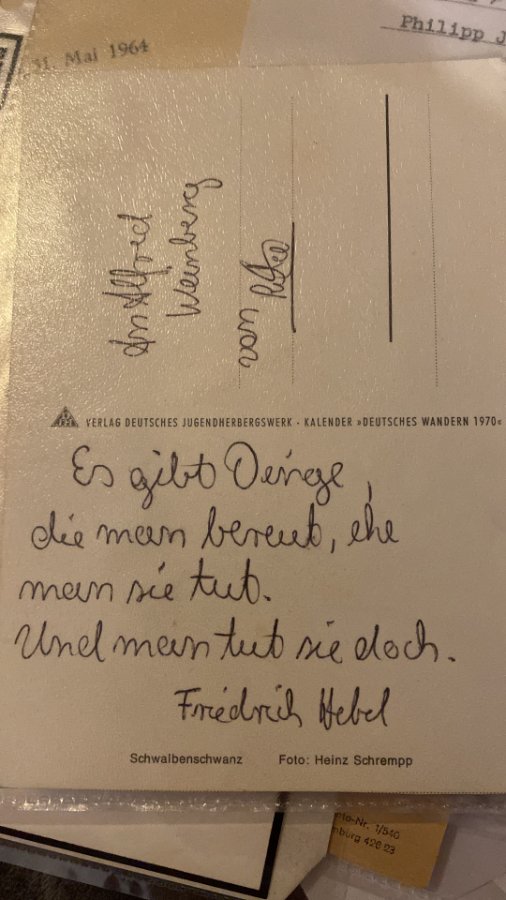 31. Mai 1964
Philipp J
An Alfred
Weinberg
von
VERLAG DEUTSCHES JUGENDHERBERGSWERK · KALENDER »DEUTSCHES WANDERN 1970«
Es gibt Dinge,
die man bereut, ehe
man sie tut.
Und man tut sie doch.
Friedrich Hebel
Schwalbenschwanz Foto: Heinz Schrempp
to-Nr. 1/540
nburg 426 23